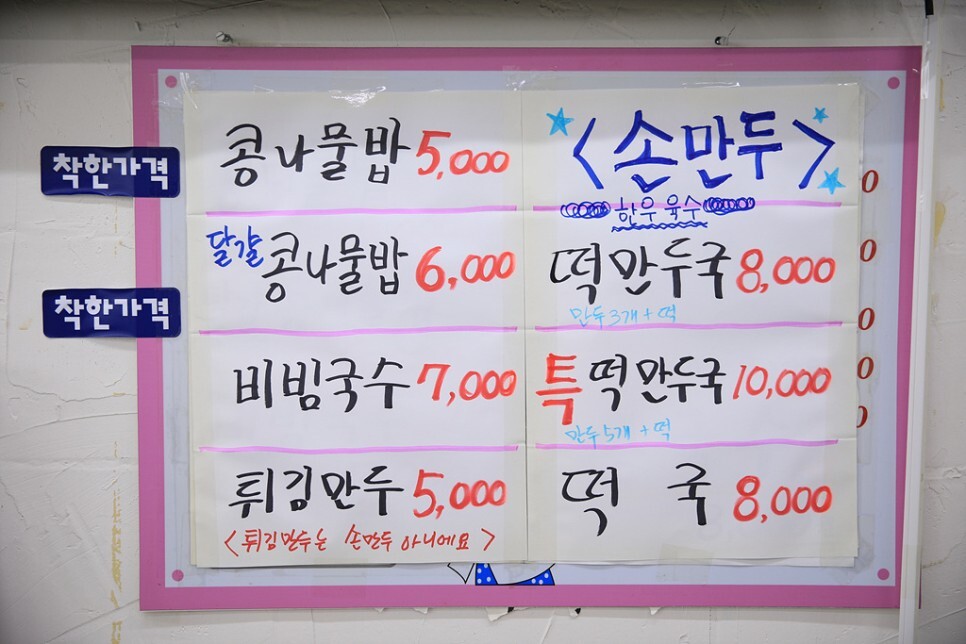 착한가격
콩나물밥 5,000
달걀 콩나물밥 6,000
착한가격
비빔국수 7,000
튀김만두 5,000
<튀김만두는 손만두 아니에요>
<손만두>
한우 육수
떡만두국 8,000
만두3개+떡
특 떡만두국 10,000
만두5개+떡
떡국 8,000
0
0
0
0
0